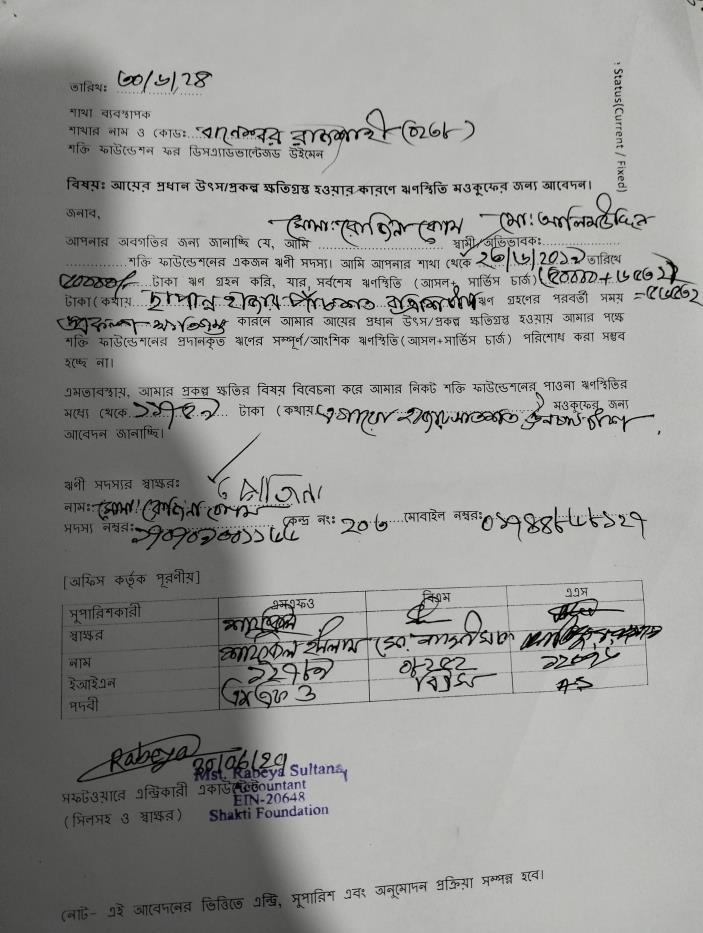 তারিখ: ৩০/৬/২৪
Status(Current / Fixed)
শাখা ব্যবস্থাপক
শাখার নাম ও কোড: বানেশ্বর রাজশাহী (০২৬৮)
শক্তি ফাউন্ডেশন ফর ডিসএ্যাডভান্টেজড উইমেন
বিষয়: আয়ের প্রধান উৎস/প্রকল্প ক্ষতিগ্রস্ত হওয়ার কারণে ঋণস্থিতি মওকুফের জন্য আবেদন।
জনাব,
আপনার অবগতির জন্য জানাচ্ছি যে, আমি মোসা: রোজিনা বেগম স্বামী/অভিভাবক: মো:
শক্তি ফাউন্ডেশনের একজন ঋণী সদস্য। আমি আপনার শাখা থেকে তারিখে
৫০০০০/- টাকা ঋণ গ্রহন করি, যার, সর্বশেষ ঋণস্থিতি (আসল+ সার্ভিস চার্জ) (৫০০০০+৬৫৭২)
টাকা(কথায় ছাপান্ন হাজার পাঁচশত ঋণ গ্রহণের পরবর্তী সময় =৫৬৫৭২
প্রকল্প ক্ষতিগ্রস্ত কারনে আমার আয়ের প্রধান উৎস/প্রকল্প ক্ষতিগ্রস্ত হওয়ায় আমার পক্ষে
শক্তি ফাউন্ডেশনের প্রদানকৃত ঋণের সম্পূর্ণ/আংশিক ঋণস্থিতি(আসল+সার্ভিস চার্জ) পরিশোধ করা সম্ভব
হচ্ছে না।
এমতাবস্থায়, আমার প্রকল্প ক্ষতির বিষয় বিবেচনা করে আমার নিকট শক্তি ফাউন্ডেশনের পাওনা ঋণস্থিতির
মধ্যে থেকে টাকা (কথায় এগারো হাজার সাতশত মওকুফের জন্য
আবেদন জানাচ্ছি।
ঋণী সদস্যর স্বাক্ষর: রোজিনা
নাম: মোসা: রোজিনা বেগম
সদস্য নম্বর: কেন্দ্র নং: ২০৬ মোবাইল নম্বর:
[অফিস কর্তৃক পূরণীয়]
সুপারিশকারী এমএফও বিএম এএস
স্বাক্ষর
নাম
ইআইএন
পদবী এমএফও বিএম AS
Rabeya
Mst. Rabeya Sultana
সফটওয়ারে এন্ট্রিকারী একাউন্টেন্ট Accountant
EIN-20648
(সিলসহ ও স্বাক্ষর) Shakti Foundation
নোট- এই আবেদনের ভিত্তিতে এন্ট্রি, সুপারিশ এবং অনুমোদন প্রক্রিয়া সম্পন্ন হবে।